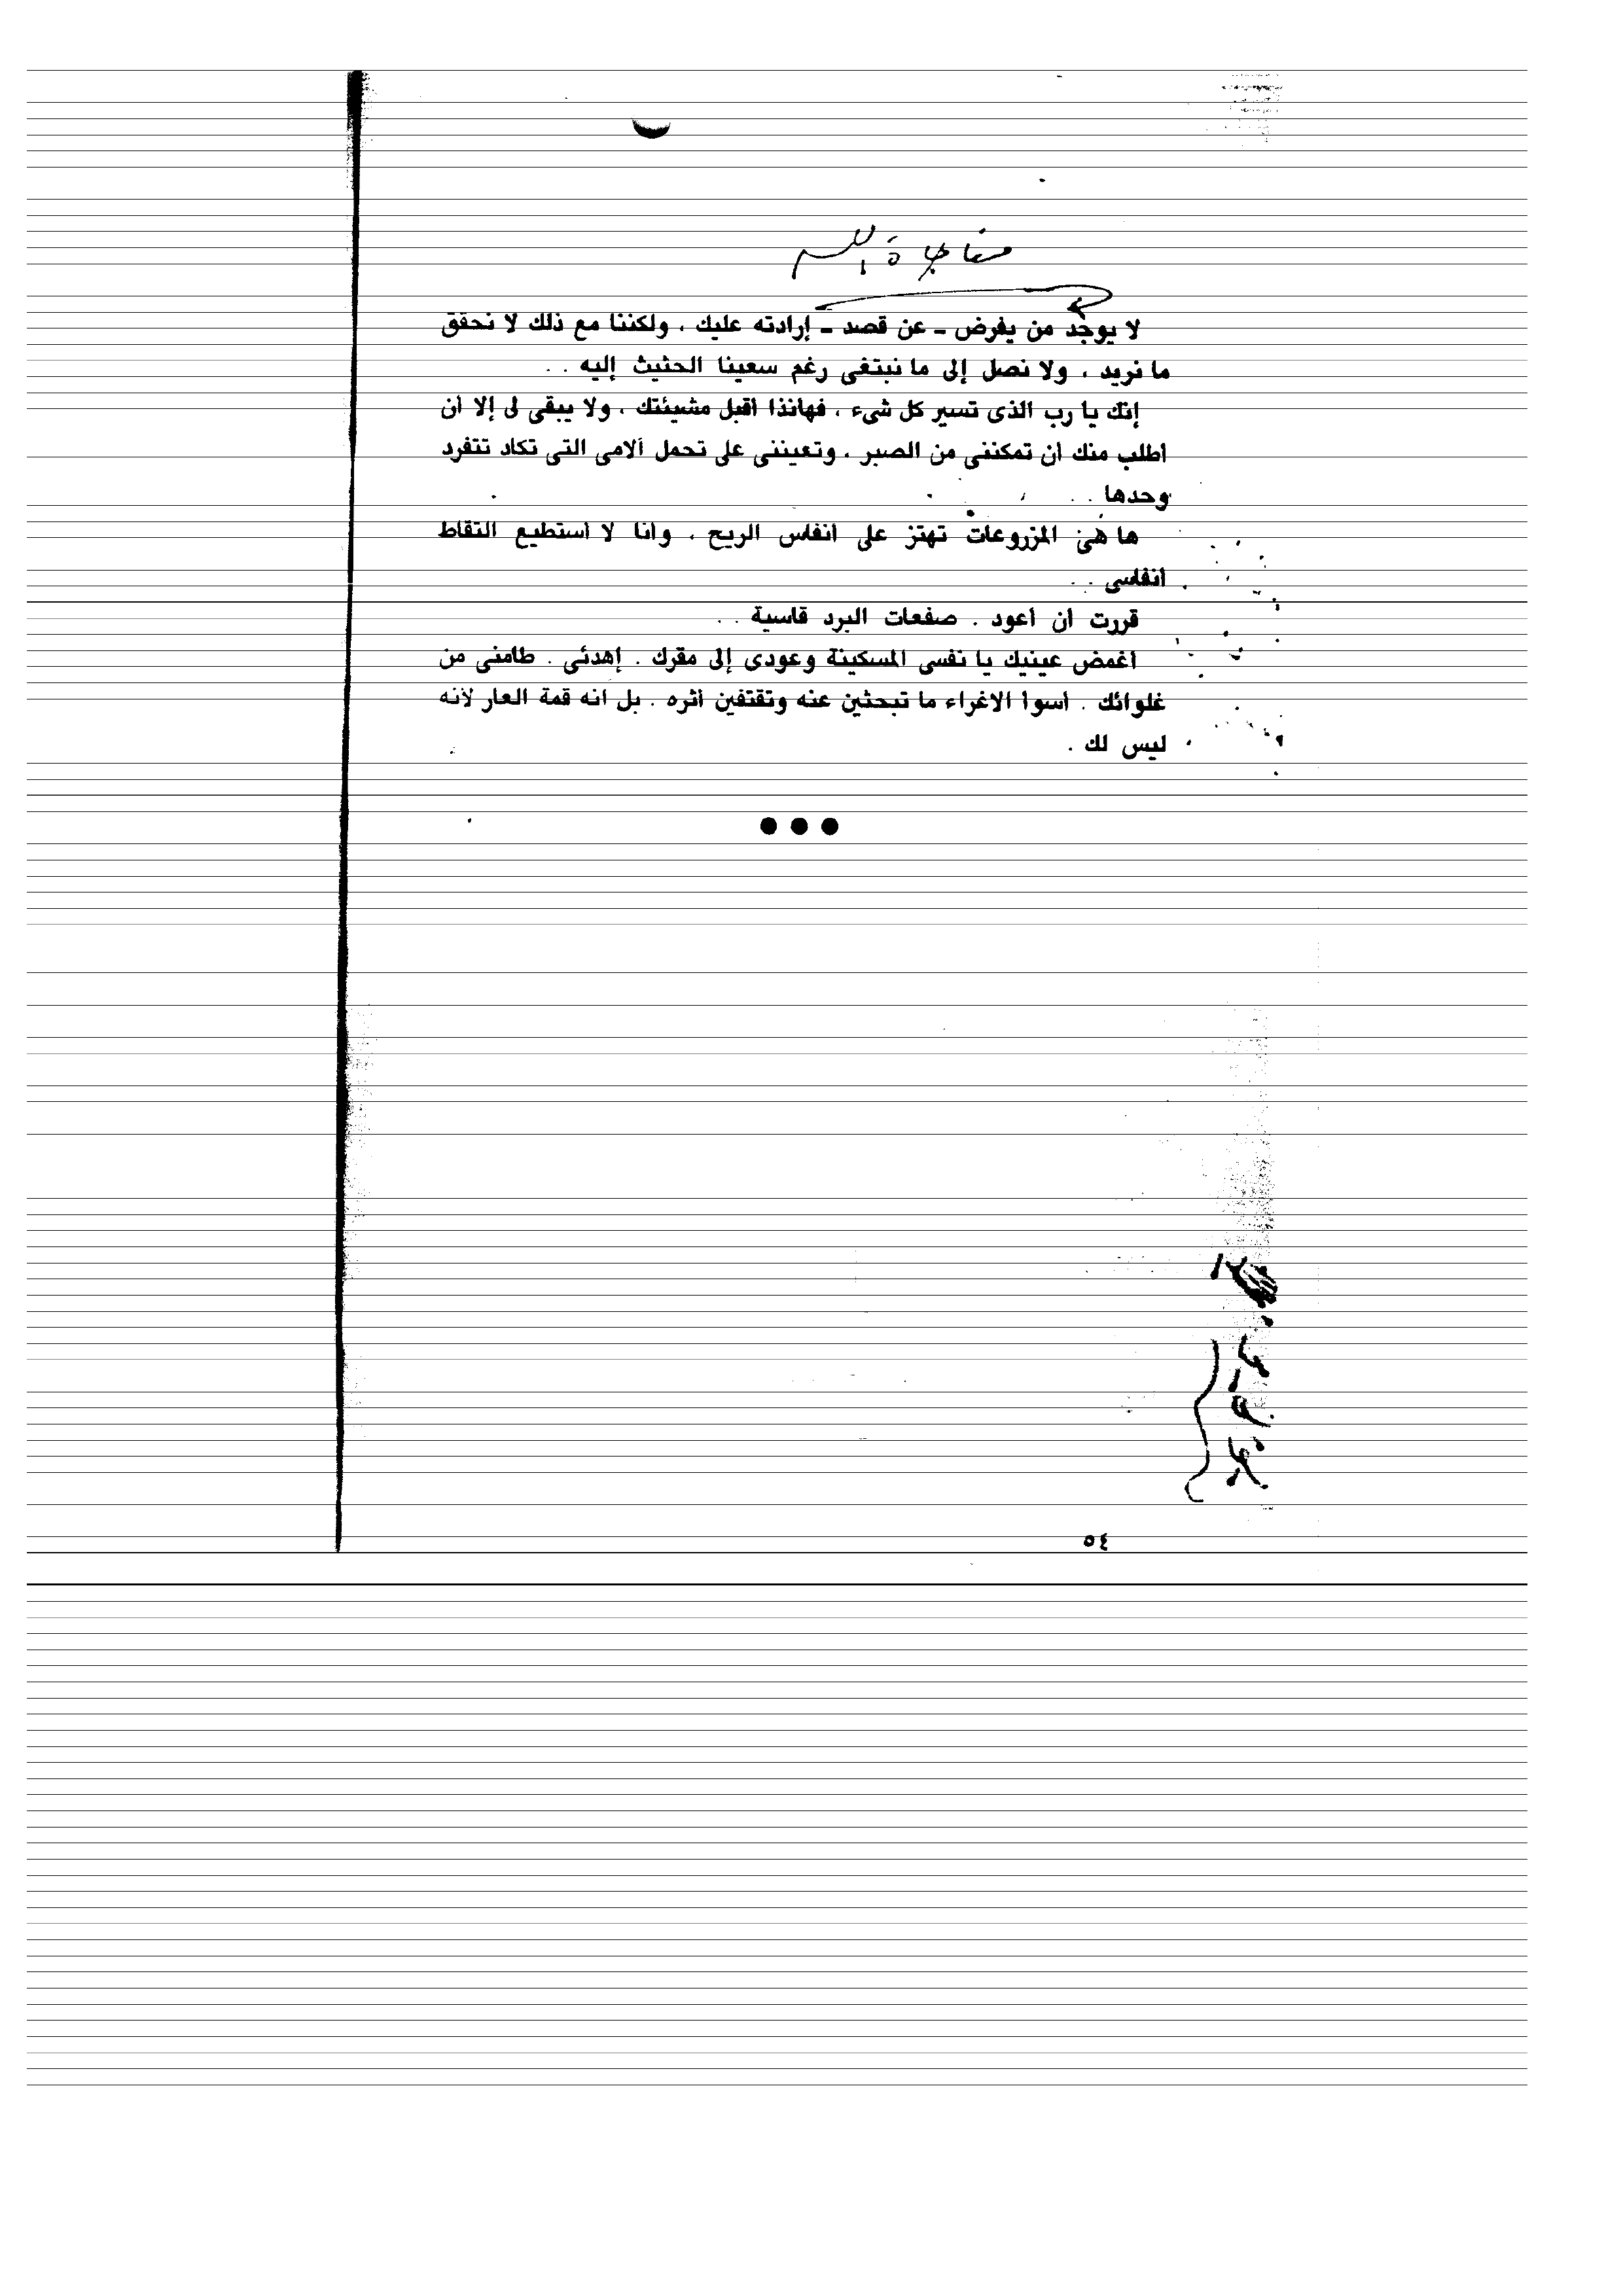 لا يوجد من يفرض - عن قصد - إرادته عليك ، ولكننا مع ذلك لا نحقق
ما نريد ، ولا نصل إلى ما نبتغى رغم سعينا الحثيث إليه . .
إنك يا رب الذى تسير كل شىء ، فهانذا اقبل مشيئتك ، ولا يبقى لى إلا أن
اطلب منك ان تمكننى من الصبر ، وتعيننى على تحمل ألامى التى تكاد تنفرد
وحدها . .
ها هى المزروعات تهتز على انفاس الريح ، وانا لا استطيع التقاط
أنفاسى . .
قررت ان اعود . صفعات البرد قاسية . .
اغمض عينيك يا نفسى المسكينة وعودى إلى مقرك . إهدئى . طامنى من
غلوائك . اسوا الاغراء ما تبحثين عنه وتقتفين اثره . بل انه قمة العار لأنه
ليس لك .
٥٤